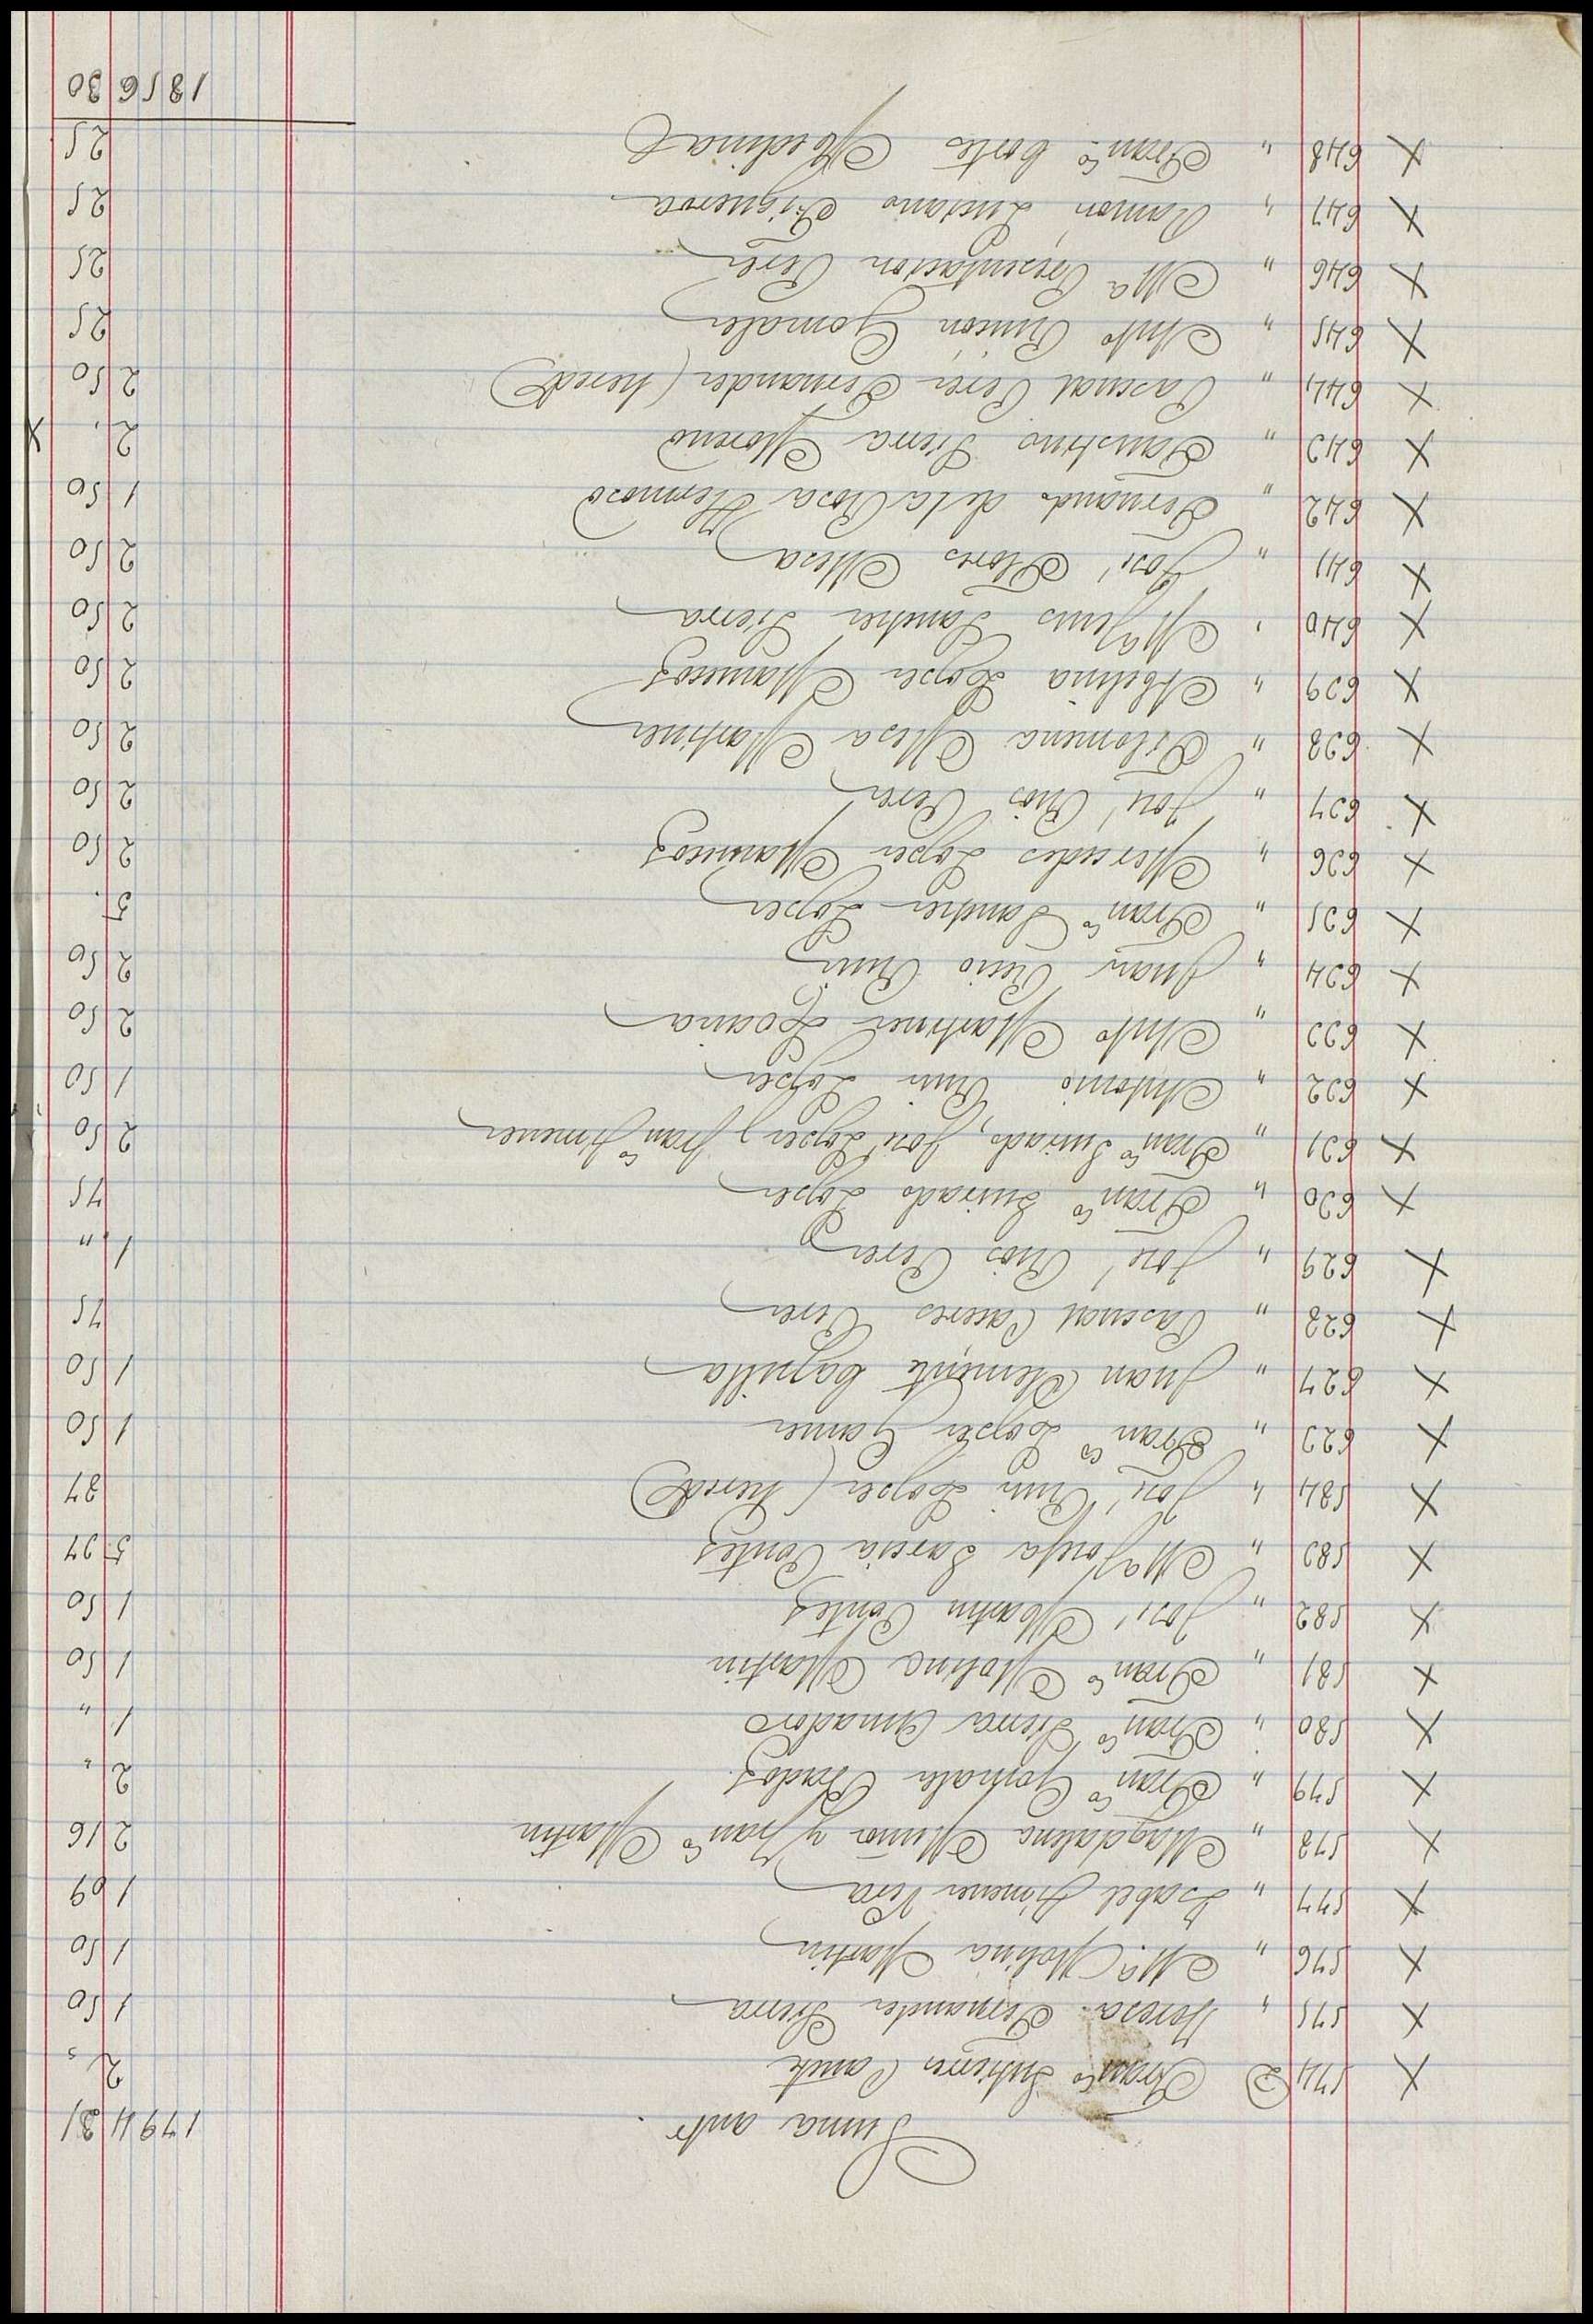 Suma antr. 1794 31
X 574 D Franco Gutierrez Cañete 2 ,
X 575 " Teresa Fernandez Sierra 1 50
X 576 " Ma. Molina Martin 1 50
X 577 " Isabel Jimenez Vera 1 09
X 578 " Magdalena Muñoz y Franco Martin 2 16
X 579 " Franco Gonzalez Prados 2 ,
X 580 " Franco Sierra Amador 1 "
X 581 " Franco Molina Martin 1 50
X 582 " José Martin Montes 1 50
X 583 " Ma Josefa Garcia Montes 5 37
X 584 " José Ruiz Lopez (hered) 37
X 623 " Franco Lopez Gamez 1 50
X 627 " Juan Clemente Capilla 1 50
X 628 " Pascual Caceres Perez 75
X 629 " José Rios Perez 1 "
X 630 " Franco Jurado Lopez 75
X 631 " Franco Jurado, José Lopez y Franco Jimenez 2 50
X 632 " Antonio Ruiz Lopez 1 50
X 633 " Anto Martinez 2 50
X 634 " Juan Recio Ruiz 2 50
X 635 " Franco Sanchez Lopez 5 .
X 636 " Mercedes Lopez Marrecos 2 50
X 637 " José Rios Perez 2 50
X 638 " Filomena Mesa Martinez 2 50
X 639 " Abelina Lopez Marrecos 2 50
X 640 " Ma Jesus Sanchez Sierra 2 50
X 641 " José Flores Mesa 2 50
X 642 " Fernando de la Rosa Hermoso 1 50
X 643 " Faustino Sierra Moreno 2 , X
X 644 " Pascual Perez Fernandez (hered) 2 50
X 645 " Anto Rincón Gonzalez 25
X 646 " Ma Presentacion Perez 25
X 647 " Ramon Luciano Figueroa 25
X 648 " Franco Cortes Medina 25
1856 30